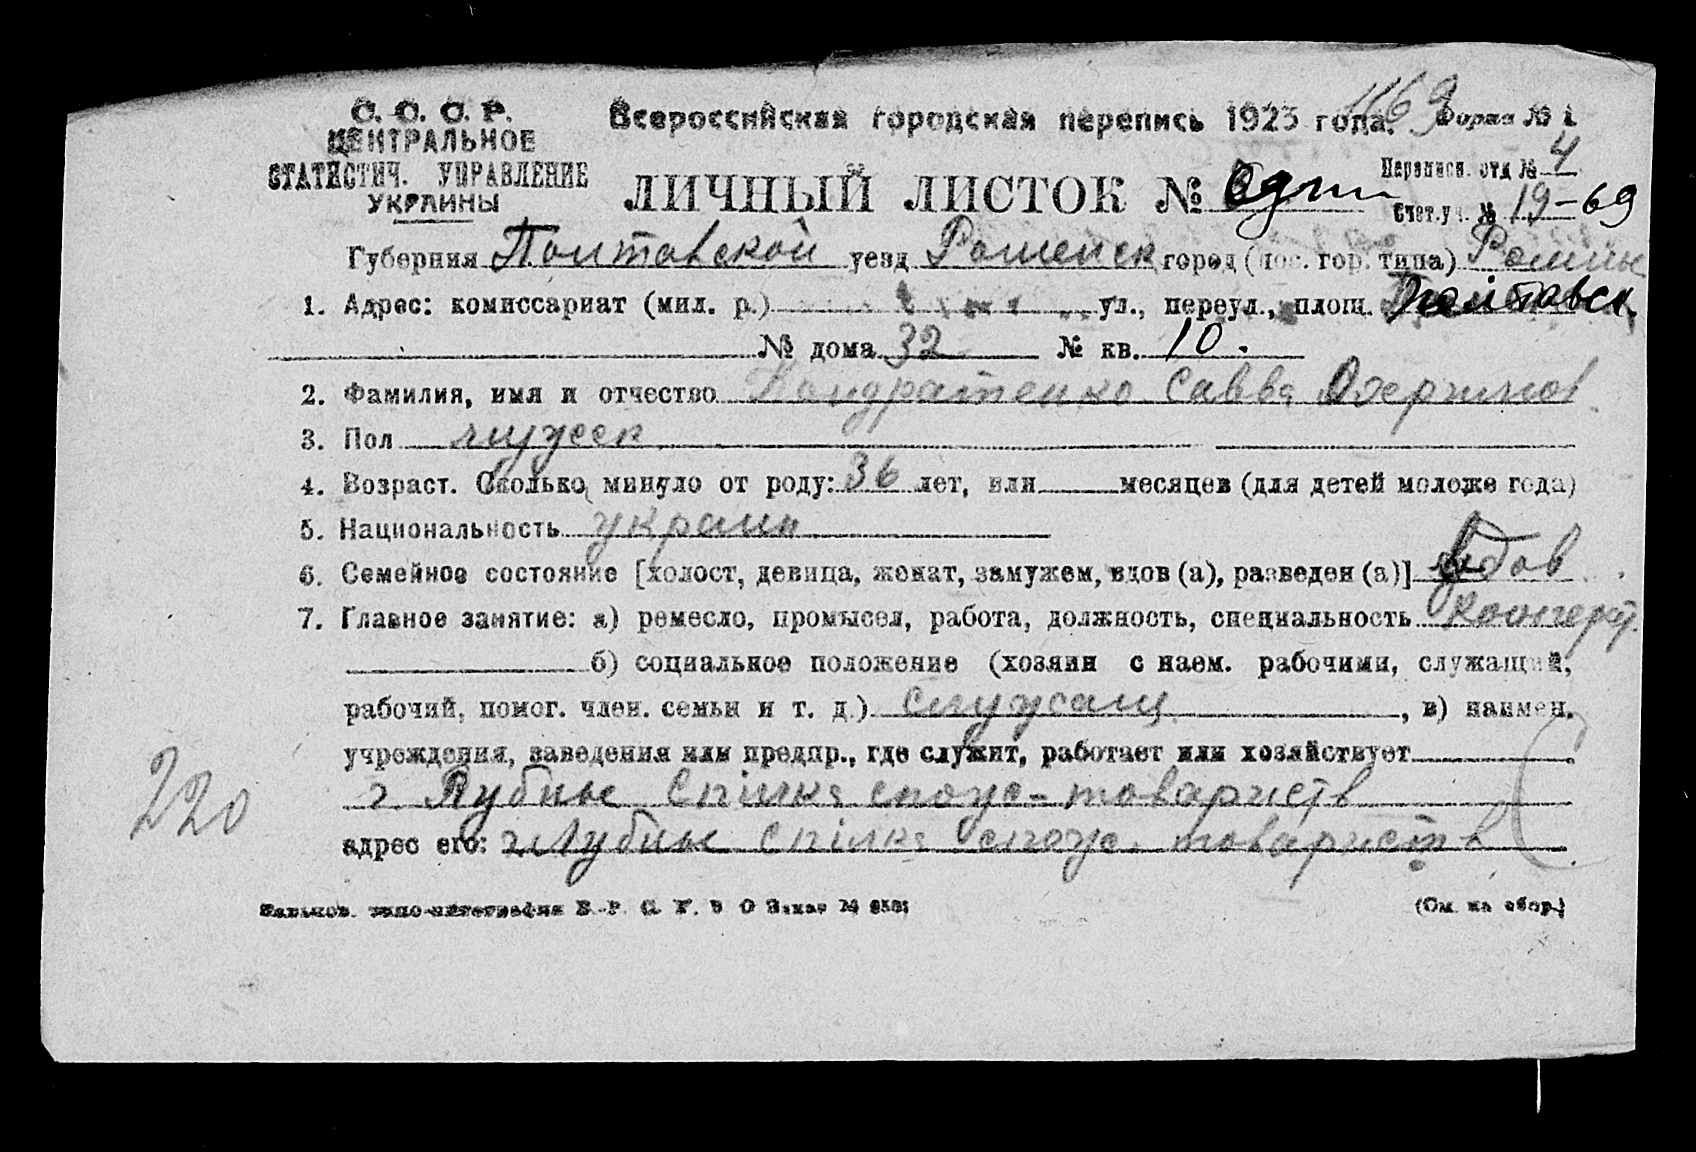 С. С. С. Р.
ЦЕНТРАЛЬНОЕ
СТАТИСТИЧ. УПРАВЛЕНИЕ
УКРАИНЫ
Всероссийская городская перепись 1923 года.
Форма № 1
Перепися. отд № 4
ЛИЧНЫЙ ЛИСТОК № Один
Счет.уч. № 19-69
Губерния Полтавской уезд Роменск город (пос. гор. типа) Ромны
1. Адрес: комиссариат (мил. р.) ул., переул., площ. Полтавск.
№ дома 32 № кв. 10.
2. Фамилия, имя и отчество Кондратенко Савва
3. Пол мужск
4. Возраст. Сколько минуло от роду: 36 лет, или месяцев (для детей моложе года)
5. Национальность украин
6. Семейное состояние [холост, девица, женат, замужем, вдов (а), разведен (а)] вдов
7. Главное занятие: а) ремесло, промысел, работа, должность, специальность
б) социальное положение (хозяин с наем. рабочими, служащий,
рабочий, помог. член. семьи и т. д.) служащ, в) наимен.
учреждения, заведения или предпр., где служит, работает или хозяйствует
г Лубны Спілка спож-товариств
адрес его: г Лубны Спілка спож. товариств
220
(См. на обор.)